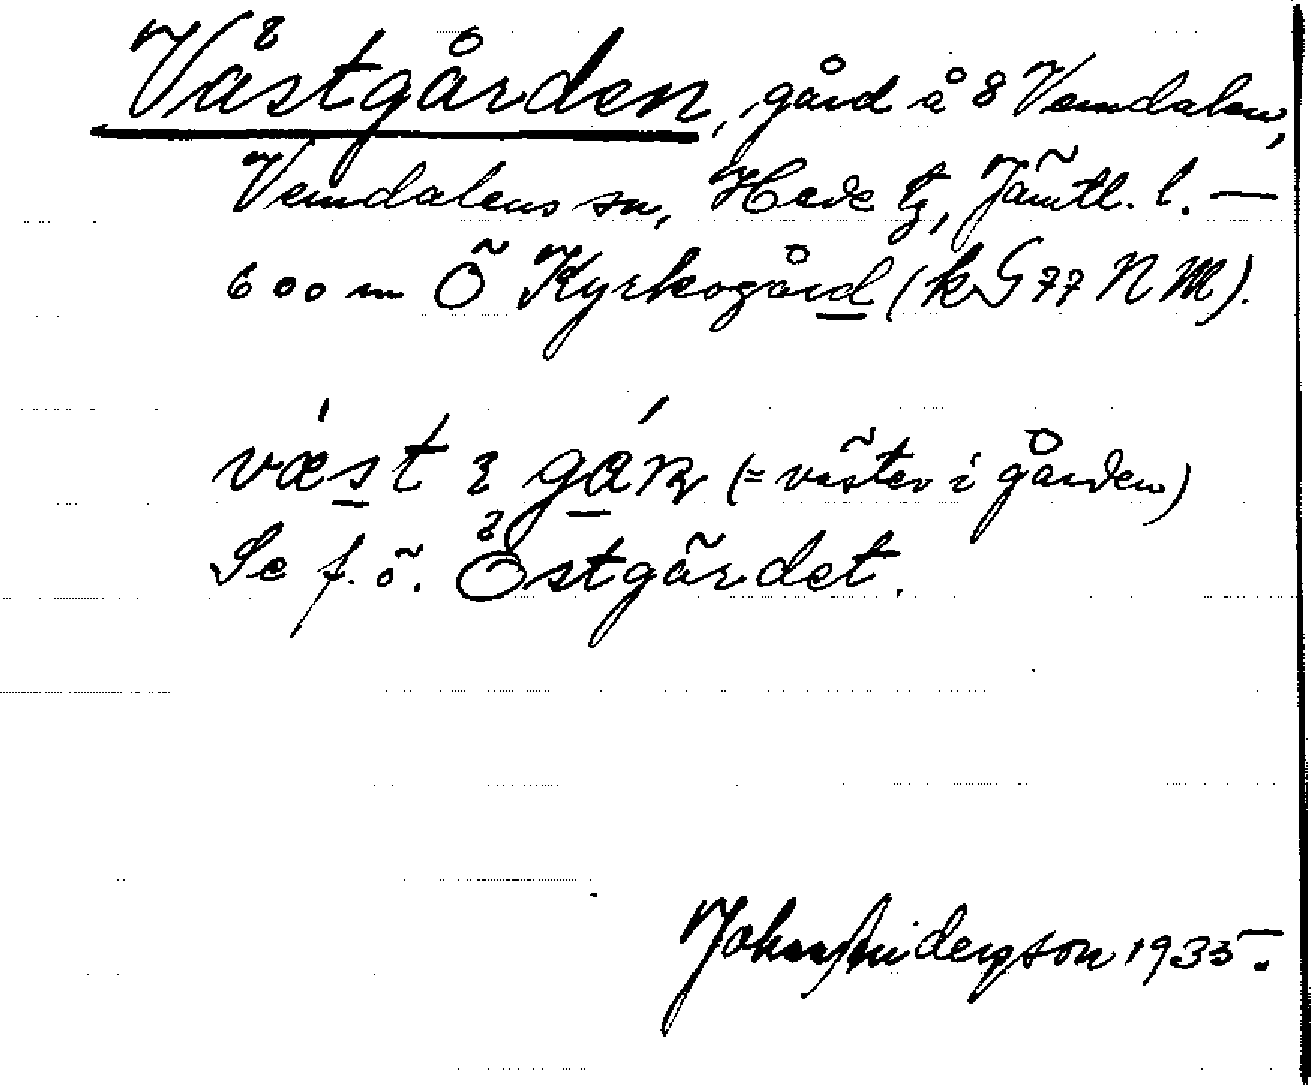 Västgården, gård å 8 Vemdalen,
Vemdalens sn, Hede tg, Jämtl. l. —
600 m Ö Kyrkogård (kG 77 N M).
væst i gáṛn (= väster i gården)
Se f. ö. Östgärdet.
Johan Anderson 1935.